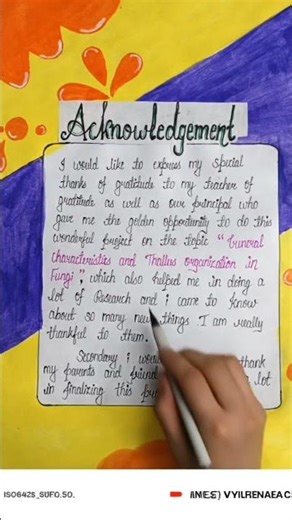 Acknowledgement
I would like to express my special
thanks of gratitude to my teacher of
gratitude as well as our principal who
gave me the golden opportunity to do this
wonderful project on the topic "General
Characteristics and Thallus organization in
Fungi", which also helped me in doing a
lot of Research and i came to know
about so many new things. I am really
thankful to them.
Secondary i would thank
my parents and friend lot
in finalizing this